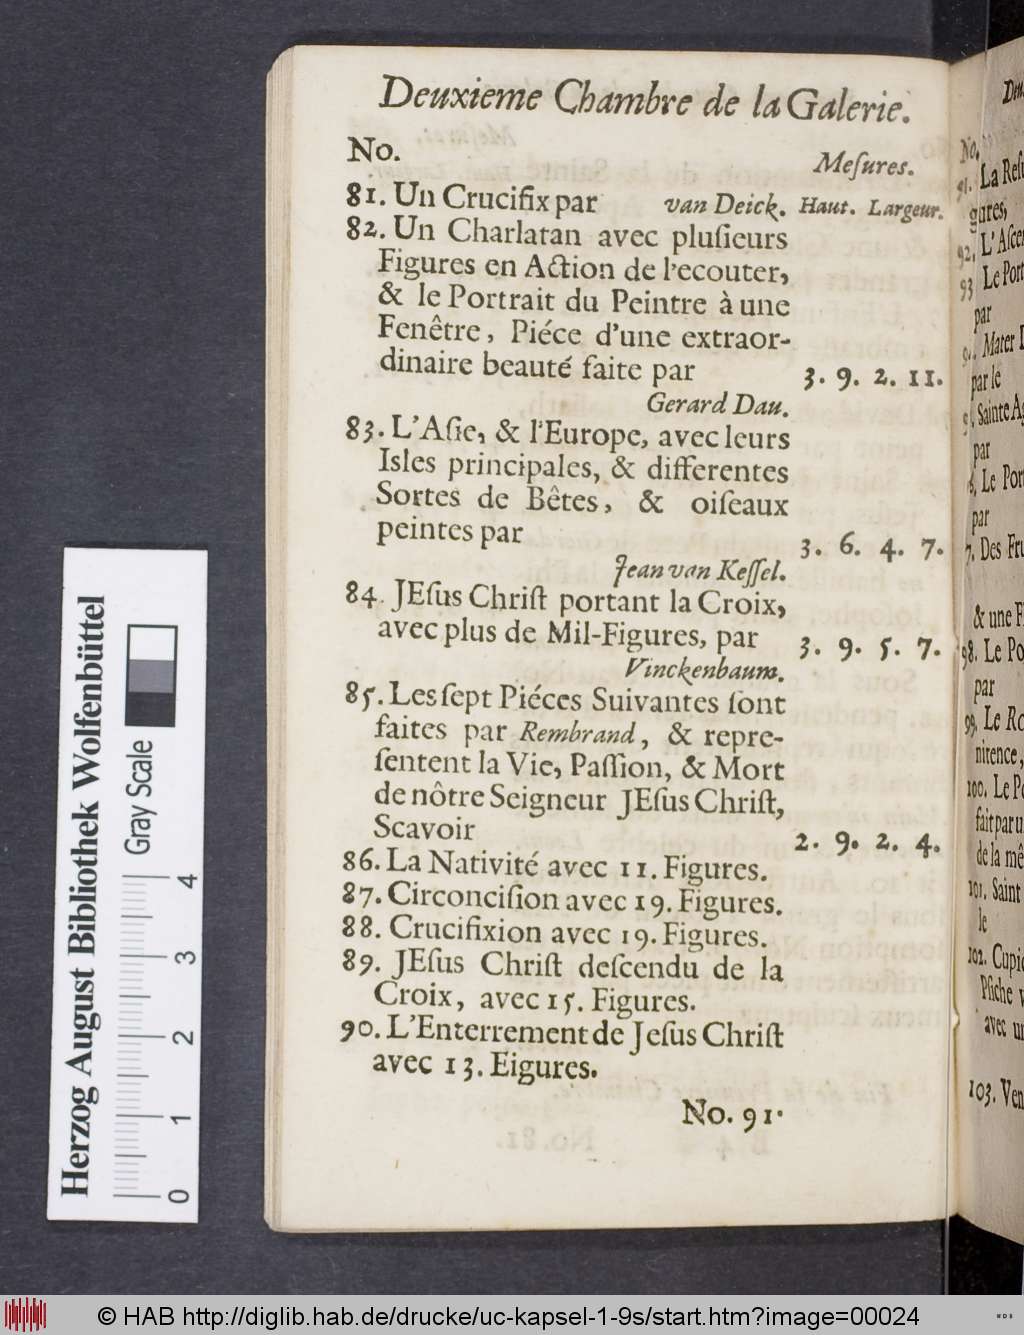 Deuxieme Chambre de la Galerie.
No.
Meſures.
81. Un Crucifix par van Deick. Haut. Largeur.
82. Un Charlatan avec pluſieurs
Figures en Action de l'ecouter,
& le Portrait du Peintre à une
Fenêtre, Piéce d'une extraor-
dinaire beauté faite par 3. 9. 2. 11.
Gerard Dau.
83. L'Aſie, & l'Europe, avec leurs
Isles principales, & differentes
Sortes de Bêtes, & oiſeaux
peintes par 3. 6. 4. 7.
Jean van Keſſel.
84. JEſus Chriſt portant la Croix,
avec plus de Mil-Figures, par 3. 9. 5. 7.
Vinckenbaum.
85. Les ſept Piéces Suivantes ſont
faites par Rembrand, & repre-
ſentent la Vie, Paſſion, & Mort
de nôtre Seigneur JEſus Chriſt,
Scavoir 2. 9. 2. 4.
86. La Nativité avec 11. Figures.
87. Circonciſion avec 19. Figures.
88. Crucifixion avec 19. Figures.
89. JEſus Chriſt deſcendu de la
Croix, avec 15. Figures.
90. L'Enterrement de Jeſus Chriſt
avec 13. Eigures.
No. 91.
No.
La Reſu
gures,
92. L'Aſcen
93 Le Port
par
Mater D
par le
Sainte Ag
par
Le Port
par
7. Des Fru
& une Fl
98. Le Po
par
99. Le Ro
nitence,
100. Le Po
fait par u
de la mê
101. Saint
le
102. Cupid
Pſiche v
avec un
103. Ven
Herzog August Bibliothek Wolfenbüttel
Gray Scale
0 1 2 3 4
© HAB http://diglib.hab.de/drucke/uc-kapsel-1-9s/start.htm?image=00024
WDB